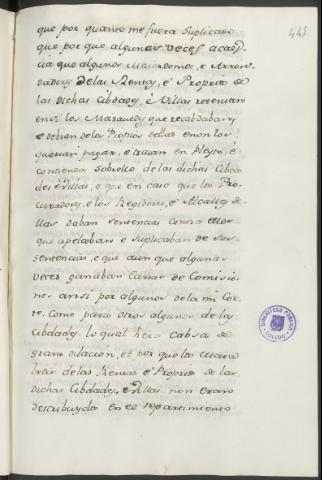 443
que por quanto me fuera Suplicado
que por que algunas veces acaeş
cia que algunos Maiordomos, e Arren
dadores de las Rentas, é Propios de
las dichas Cibdades, é Villas retenian
en si los Maravedis que recabdaban,
e debian de los Propios dellas e non los
querian pagar, e traian en Pleyto, é
contienda sobrello de las dichas Cibda
des é Villas, e que en caso que los Pro
curadores, e los Regidores, é Alcaldes de
llas daban sentencias contra ellos
que apelaban e suplicaban de sus
sentencias, e que aun que algunas
veces ganaban Cartas de Comisio
nes ansi por algunos de la mi Cor
te, como para otros algunos de las
Cibdades, lo qual hera cabsa de
grant dilacion, et por que los mara
vedis de las Rentas é Propios de las
dichas Cibdades, é Villas non eran
destribuydos en el repartimiento
BIBLIOTECA PUBLICA
TOLEDO